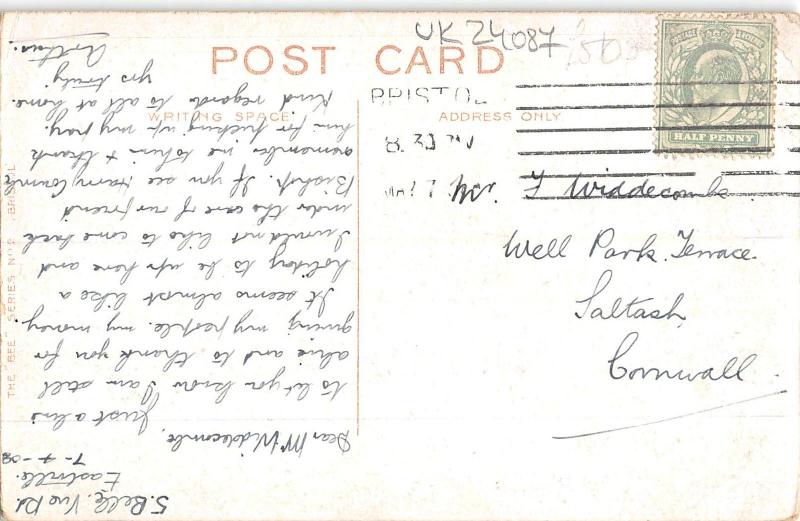 UK 24087
POST CARD
WRITING SPACE
ADDRESS ONLY
HALF PENNY
BRISTOL
8. 30 PM
MAY 7
Mr. F Widdecombe
Well Park Terrace
Saltash
Cornwall.
5. Belle Vue Rd
Eastville.
Dear Mr Widdecombe.
Just a line
to let you know I am still
alive and to thank you for
giving my people my money.
It seems almost like a
holiday to be up here and
I would not like to come back
under the care of our friend
Bishop. If you see Harry Coombe
remember me to him & thank
him for picking up my pay.
Kind regards to all at home.
yrs truly.
Arthur.
THE SERIES BRISTOL